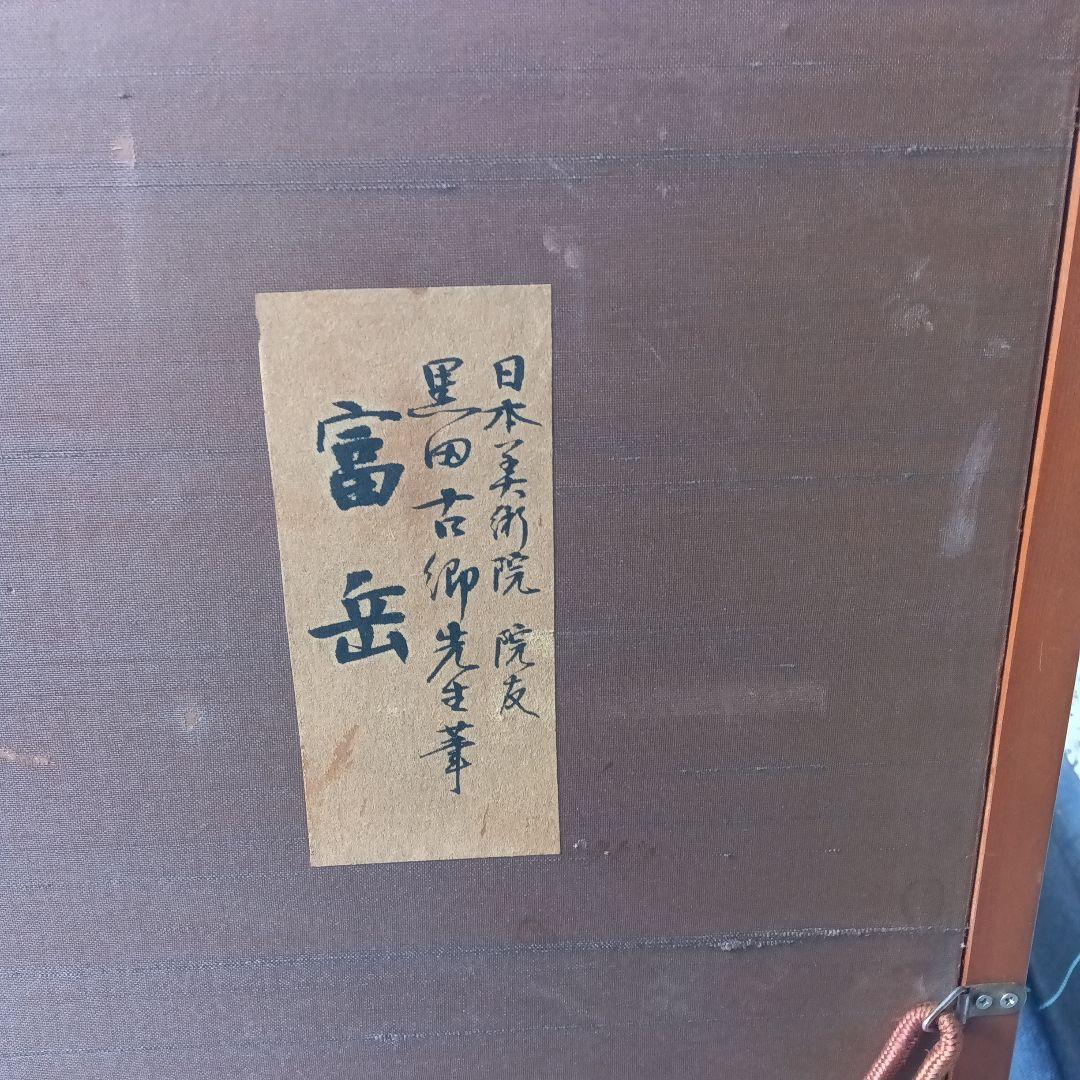 日本美術院 院友
黒田古郷先生筆
富岳